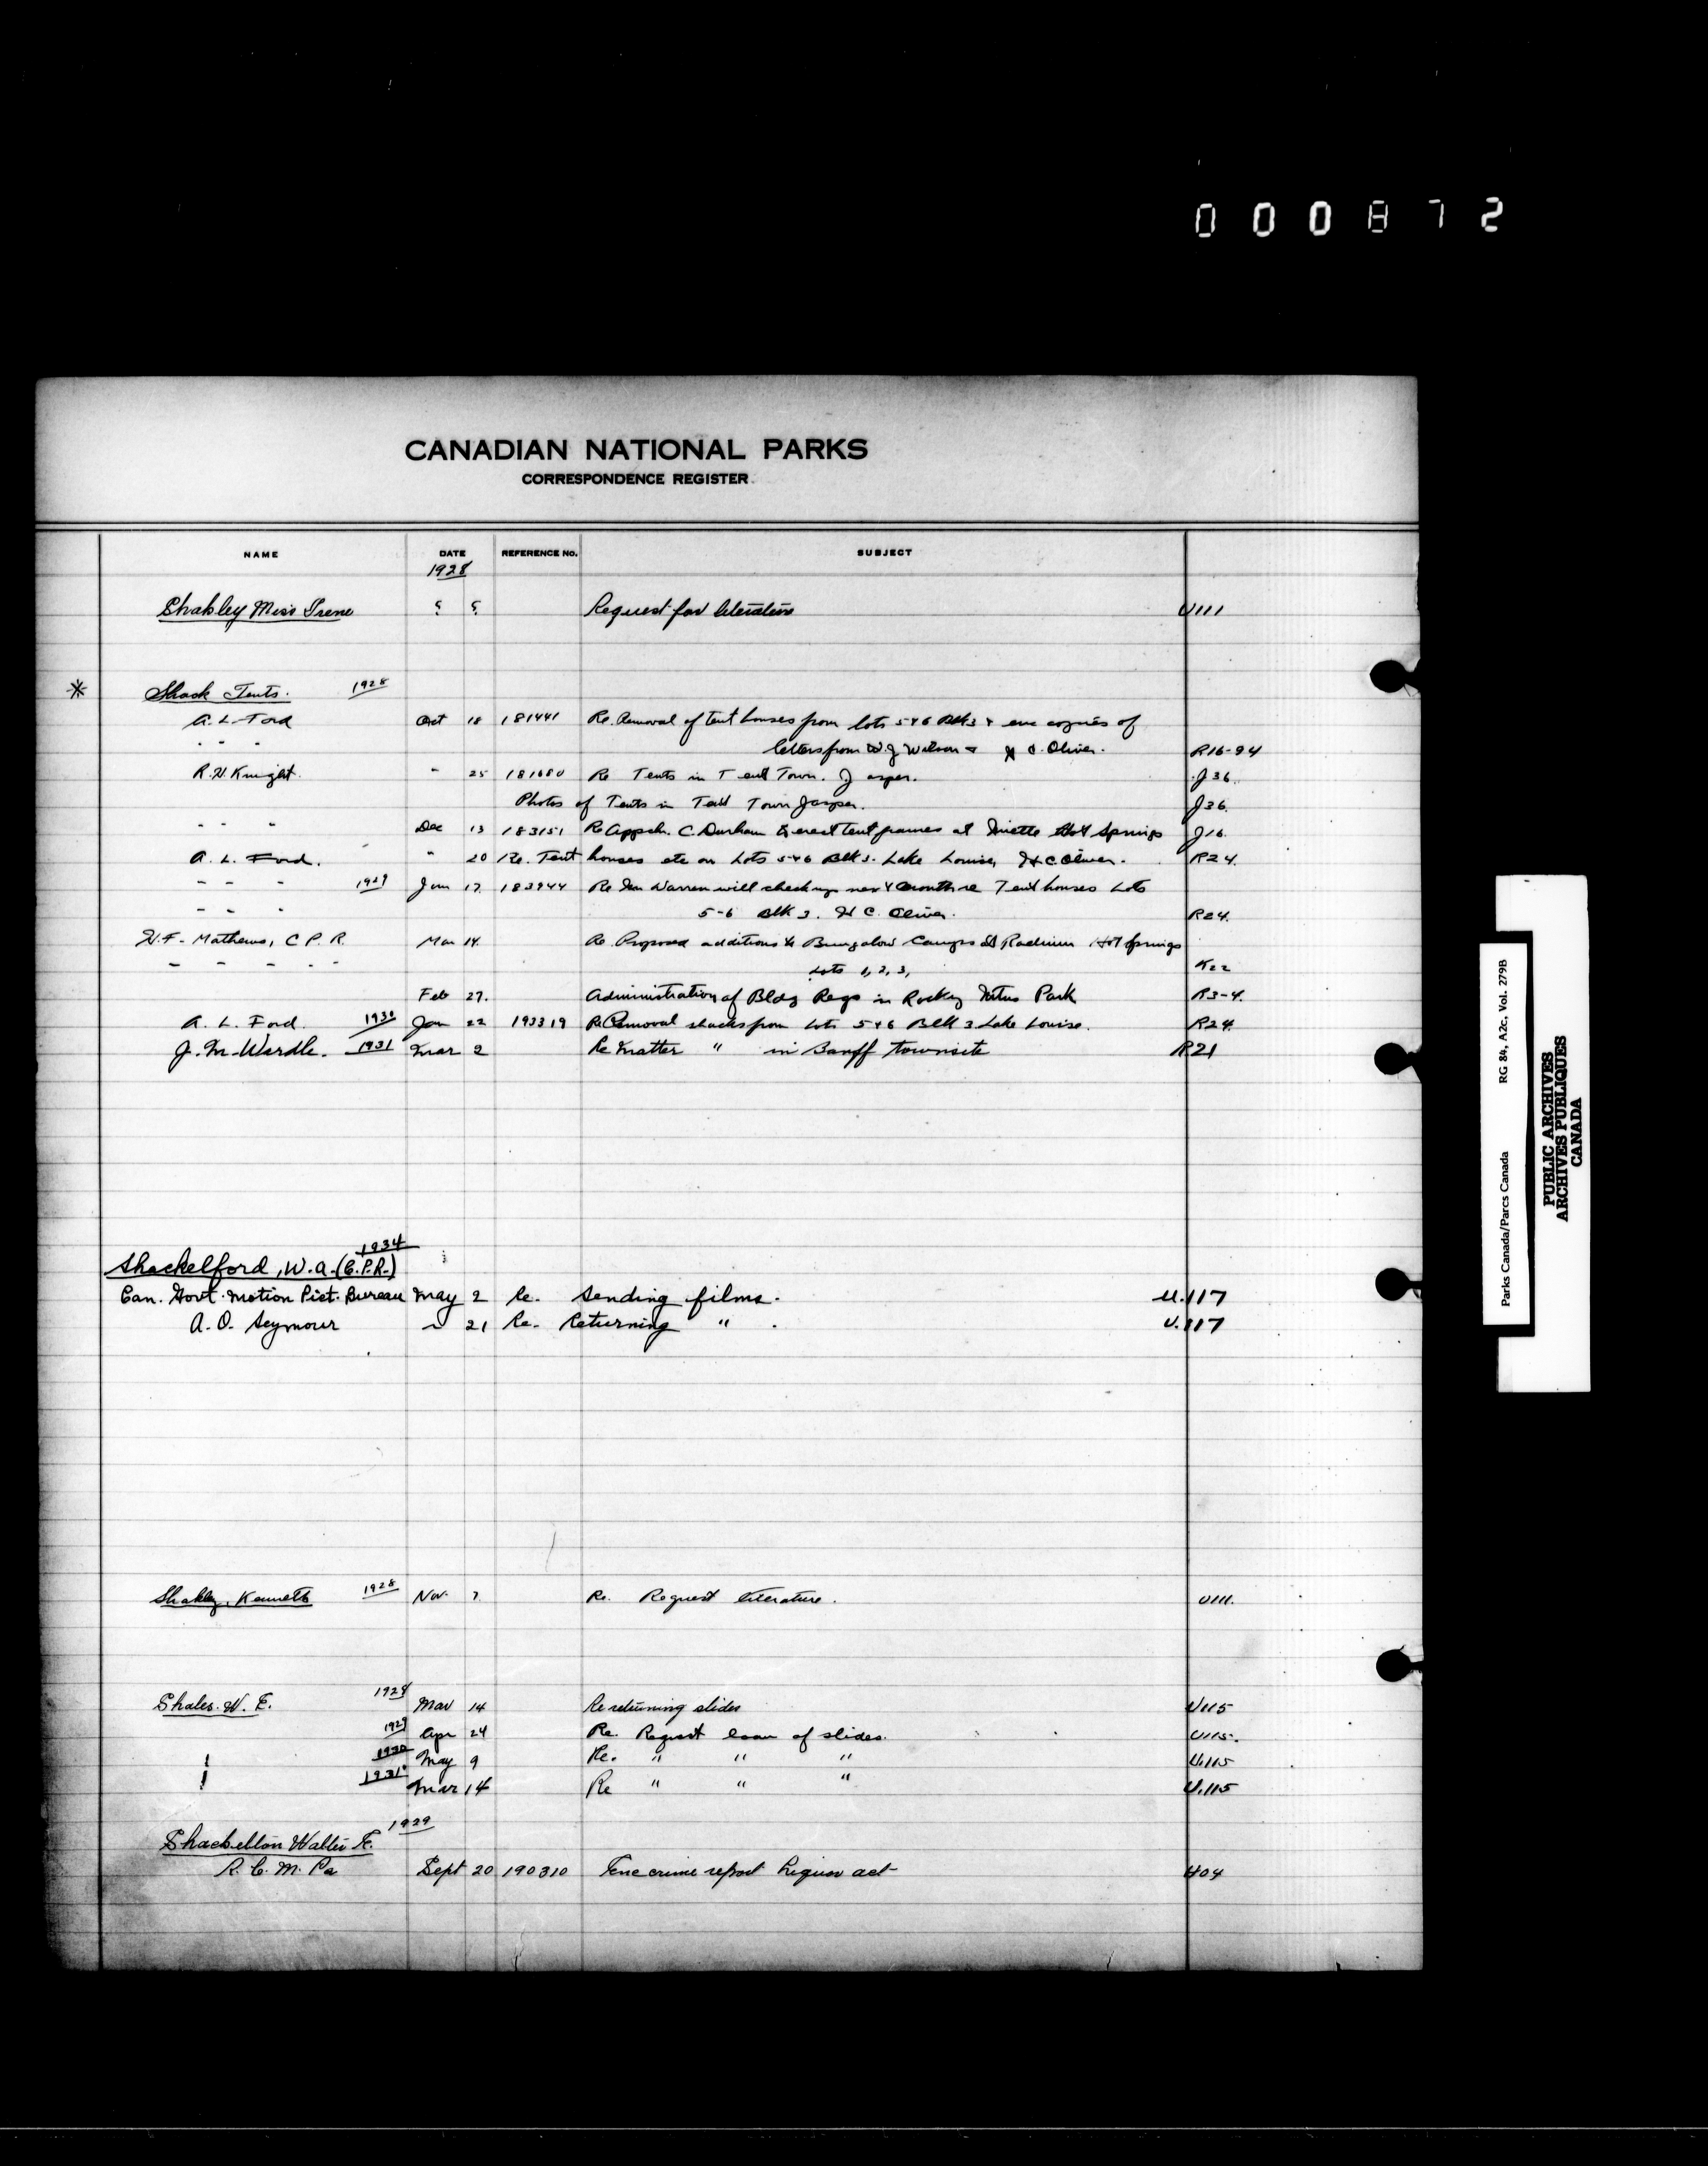 000872
CANADIAN NATIONAL PARKS
CORRESPONDENCE REGISTER
NAME DATE REFERENCE No. SUBJECT
1928
Shakley Miss Irene ? ? Request for literature U111
* Shack Tents. 1928
A. L. Ford Oct 18 181441 Re. Removal of tent houses from lots 5+6 Blk 3 + enc copies of
" " " letters from W. J Watson + H C. Oliver. R16-94
R. H. Knight. " 25 181680 Re Tents in Tent Town. Jasper. J36.
Photos of Tents in Tent Town Jasper. J36.
" " " Dec 13 183151 Re Appcn. C. Durham to erect tent frames at Miette Hot Springs J16.
A. L. Ford. " 20 Re. Tent houses etc on Lots 5+6 Blk 3. Lake Louise, H C. Oliver. R24.
" " " 1929 Jan 17. 183944 Re Warren will check up next month re Tent houses Lots
" " " 5-6 Blk 3. H C. Oliver. R24.
H. F. Mathews, C P. R. Mar 14. Re. Proposed additions to Bungalow Camps at Radium Hot Springs
" " " " " Lots 1, 2, 3, K22
Feb 27. Administration of Bldg Regs in Rocky Mtns Park R3-4.
A. L. Ford. 1930 Jan 22 193319 Re Removal shacks from Lots 5+6 Blk 3 Lake Louise. R24
J. M. Wardle. 1931 Mar 2 Re Matter " in Banff townsite R21
1934
Shackelford, W. A. (C.P.R.)
Can. Govt. Motion Pict. Bureau May 2 Re. Sending films. U.117
A. O. Seymour " 21 Re. Returning " . U.117
Shakley, Kenneth 1928 Nov. 7 Re. Request literature. U111.
Shales. W. E. 1928 Mar 14 Re returning slides U115
1929 Apr 24 Re. Request loan of slides. U115.
1930 May 9 Re. " " " U.115
1931 Mar 14 Re " " " U.115
1929
Shackelton Walter
R. C. M. Po Sept 20 190310 crime report Liquor act
Parks Canada/Parcs Canada RG 84, A2c, Vol. 279B
PUBLIC ARCHIVES
ARCHIVES PUBLIQUES
CANADA